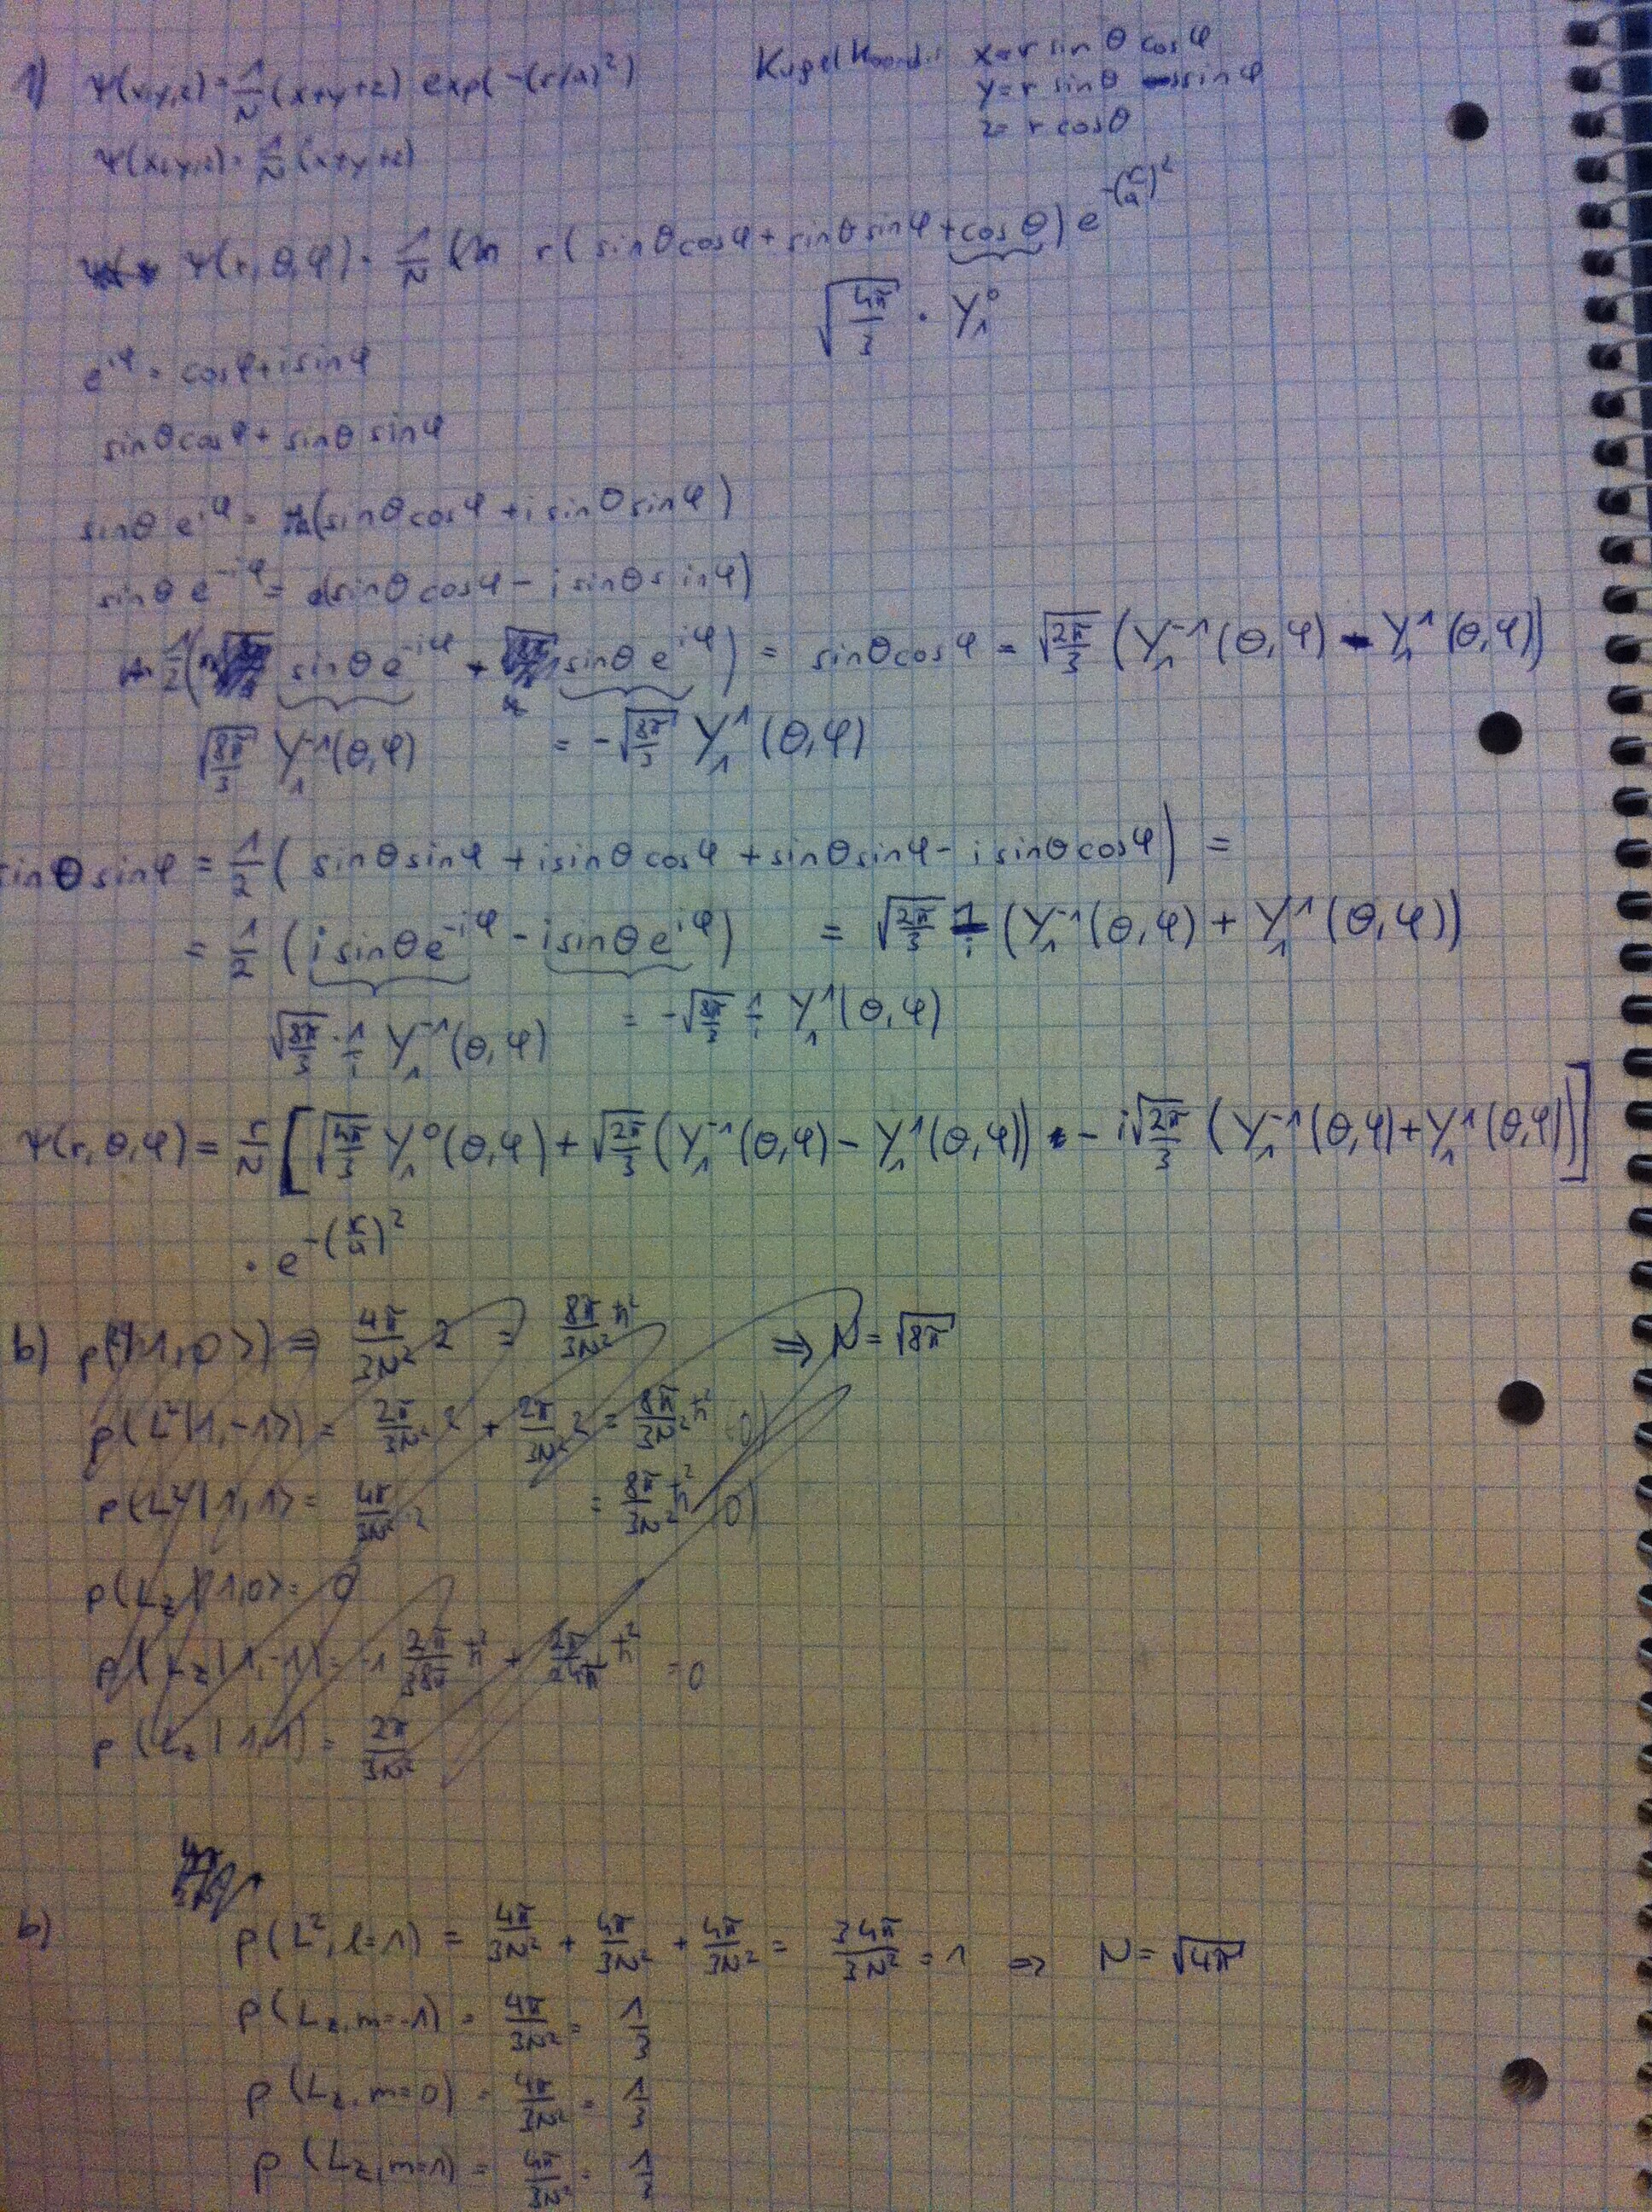 1) Ψ(x,y,z) = 1/N (x+y+z) exp(-(r/a)²)
Kugelkoord.: x = r sin θ cos φ
y = r sin θ sin φ
z = r cos θ
Ψ(x,y,z) = 1/N (x+y+z)
Ψ(r,θ,φ) = 1/N r (sinθ cosφ + sinθ sinφ + cos θ) e^{-(r/a)²}
√(4π/3) · Y₁⁰
e^{iφ} = cosφ + i sinφ
sinθ cosφ + sinθ sinφ
sinθ e^{iφ} = (sinθ cosφ + i sinθ sinφ)
sinθ e^{-iφ} = (sinθ cosφ - i sinθ sinφ)
1/2 ( sinθ e^{-iφ} + sinθ e^{iφ} ) = sinθ cosφ = √(2π/3) (Y₁⁻¹(θ,φ) - Y₁¹(θ,φ))
√(8π/3) Y₁⁻¹(θ,φ) = -√(8π/3) Y₁¹(θ,φ)
sinθ sinφ = 1/2 ( sinθ sinφ + i sinθ cosφ + sinθ sinφ - i sinθ cosφ ) =
= 1/2 (i sinθ e^{-iφ} - i sinθ e^{iφ}) = √(2π/3) 1/i (Y₁⁻¹(θ,φ) + Y₁¹(θ,φ))
√(8π/3) · 1/i Y₁⁻¹(θ,φ) = -√(8π/3) 1/i Y₁¹(θ,φ)
Ψ(r,θ,φ) = r/N [ √(4π/3) Y₁⁰(θ,φ) + √(2π/3) (Y₁⁻¹(θ,φ) - Y₁¹(θ,φ)) - i√(2π/3) (Y₁⁻¹(θ,φ) + Y₁¹(θ,φ)) ]
· e^{-(r/a)²}
b) p(L²|1,0>) = 4π/3N² 2 = 8π/3N² ħ² ⇒ N = √8π
p(L²|1,-1>) = 2π/3N² 2 + 2π/3N² 2 = 8π/3N² ħ²
p(L²|1,1> = 4π/3N² 2 = 8π/3N² ħ²
p(L_z)|1,0> = 0
p(L_z|1,-1) = -1 2π/38π ħ² + ħ² = 0
p(L_z|1,1) = 2π/3N²
b) p(L², l=1) = 4π/3N² + 4π/3N² + 4π/3N² = 3 4π/3N² = 1 ⇒ N = √4π
p(L_z, m=-1) = 4π/3N² = 1/3
p(L_z, m=0) = 4π/3N² = 1/3
p(L_z, m=1) = 4π/3N² = 1/3